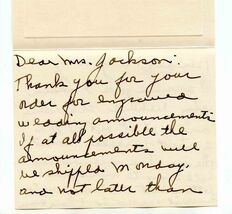 Dear Mrs. Jackson:
Thank you for your
order for engraved
wedding announcements
If at all possible the
announcements will
be shipped Monday,
and not later than